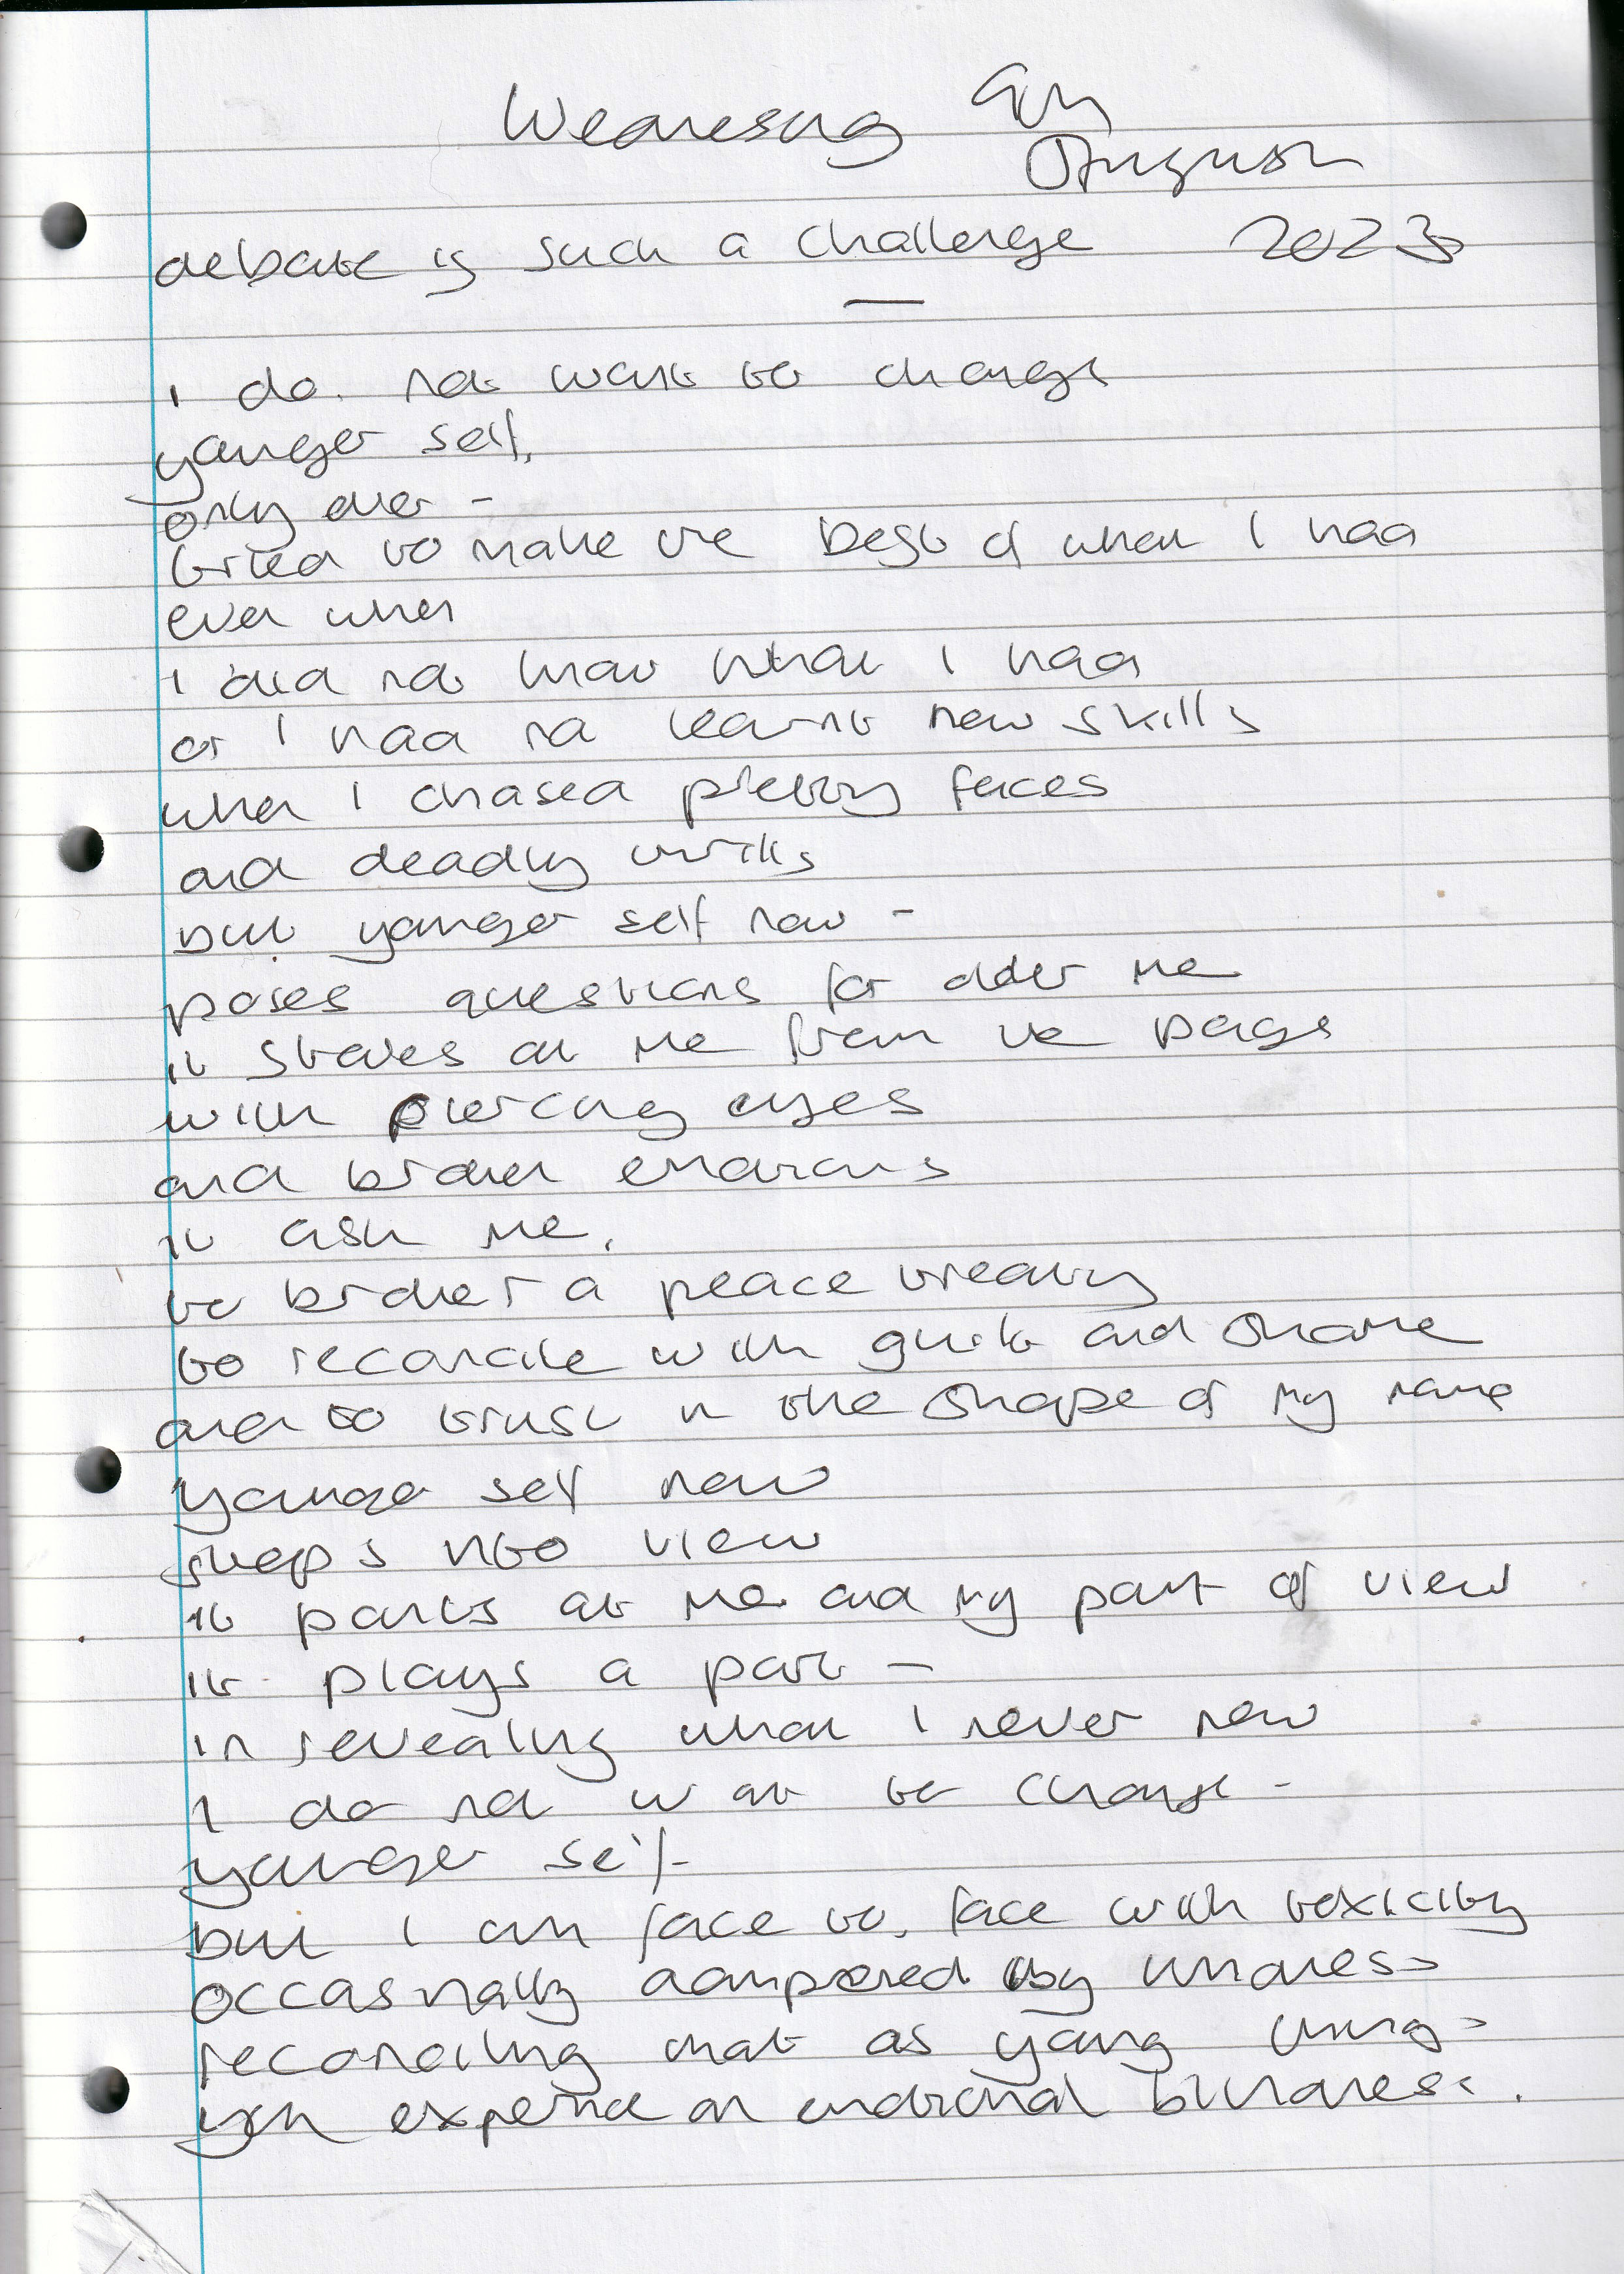 Wednesday 9th
August
debate is such a challenge 2023
I do not want to change
younger self,
only ever -
tried to make the best of what I had
even when
I did not know what I had
or I had not learnt new skills
when I chased pretty faces
and deadly thrills
but younger self now -
poses questions for older me
it stares at me from the page
with piercing eyes
and broken emotions
it ask me,
to broker a peace treaty
to reconcile with guilt and shame
and to trust in the shape of my name
younger self now
steps into view
it points at me and my point of view
it plays a part -
in revealing what I never new
I do not want to change -
younger self -
but I am face to, face with toxicity
occasnally dampered by kindness
reconciling that as young thing
you experince an emotional blindness.